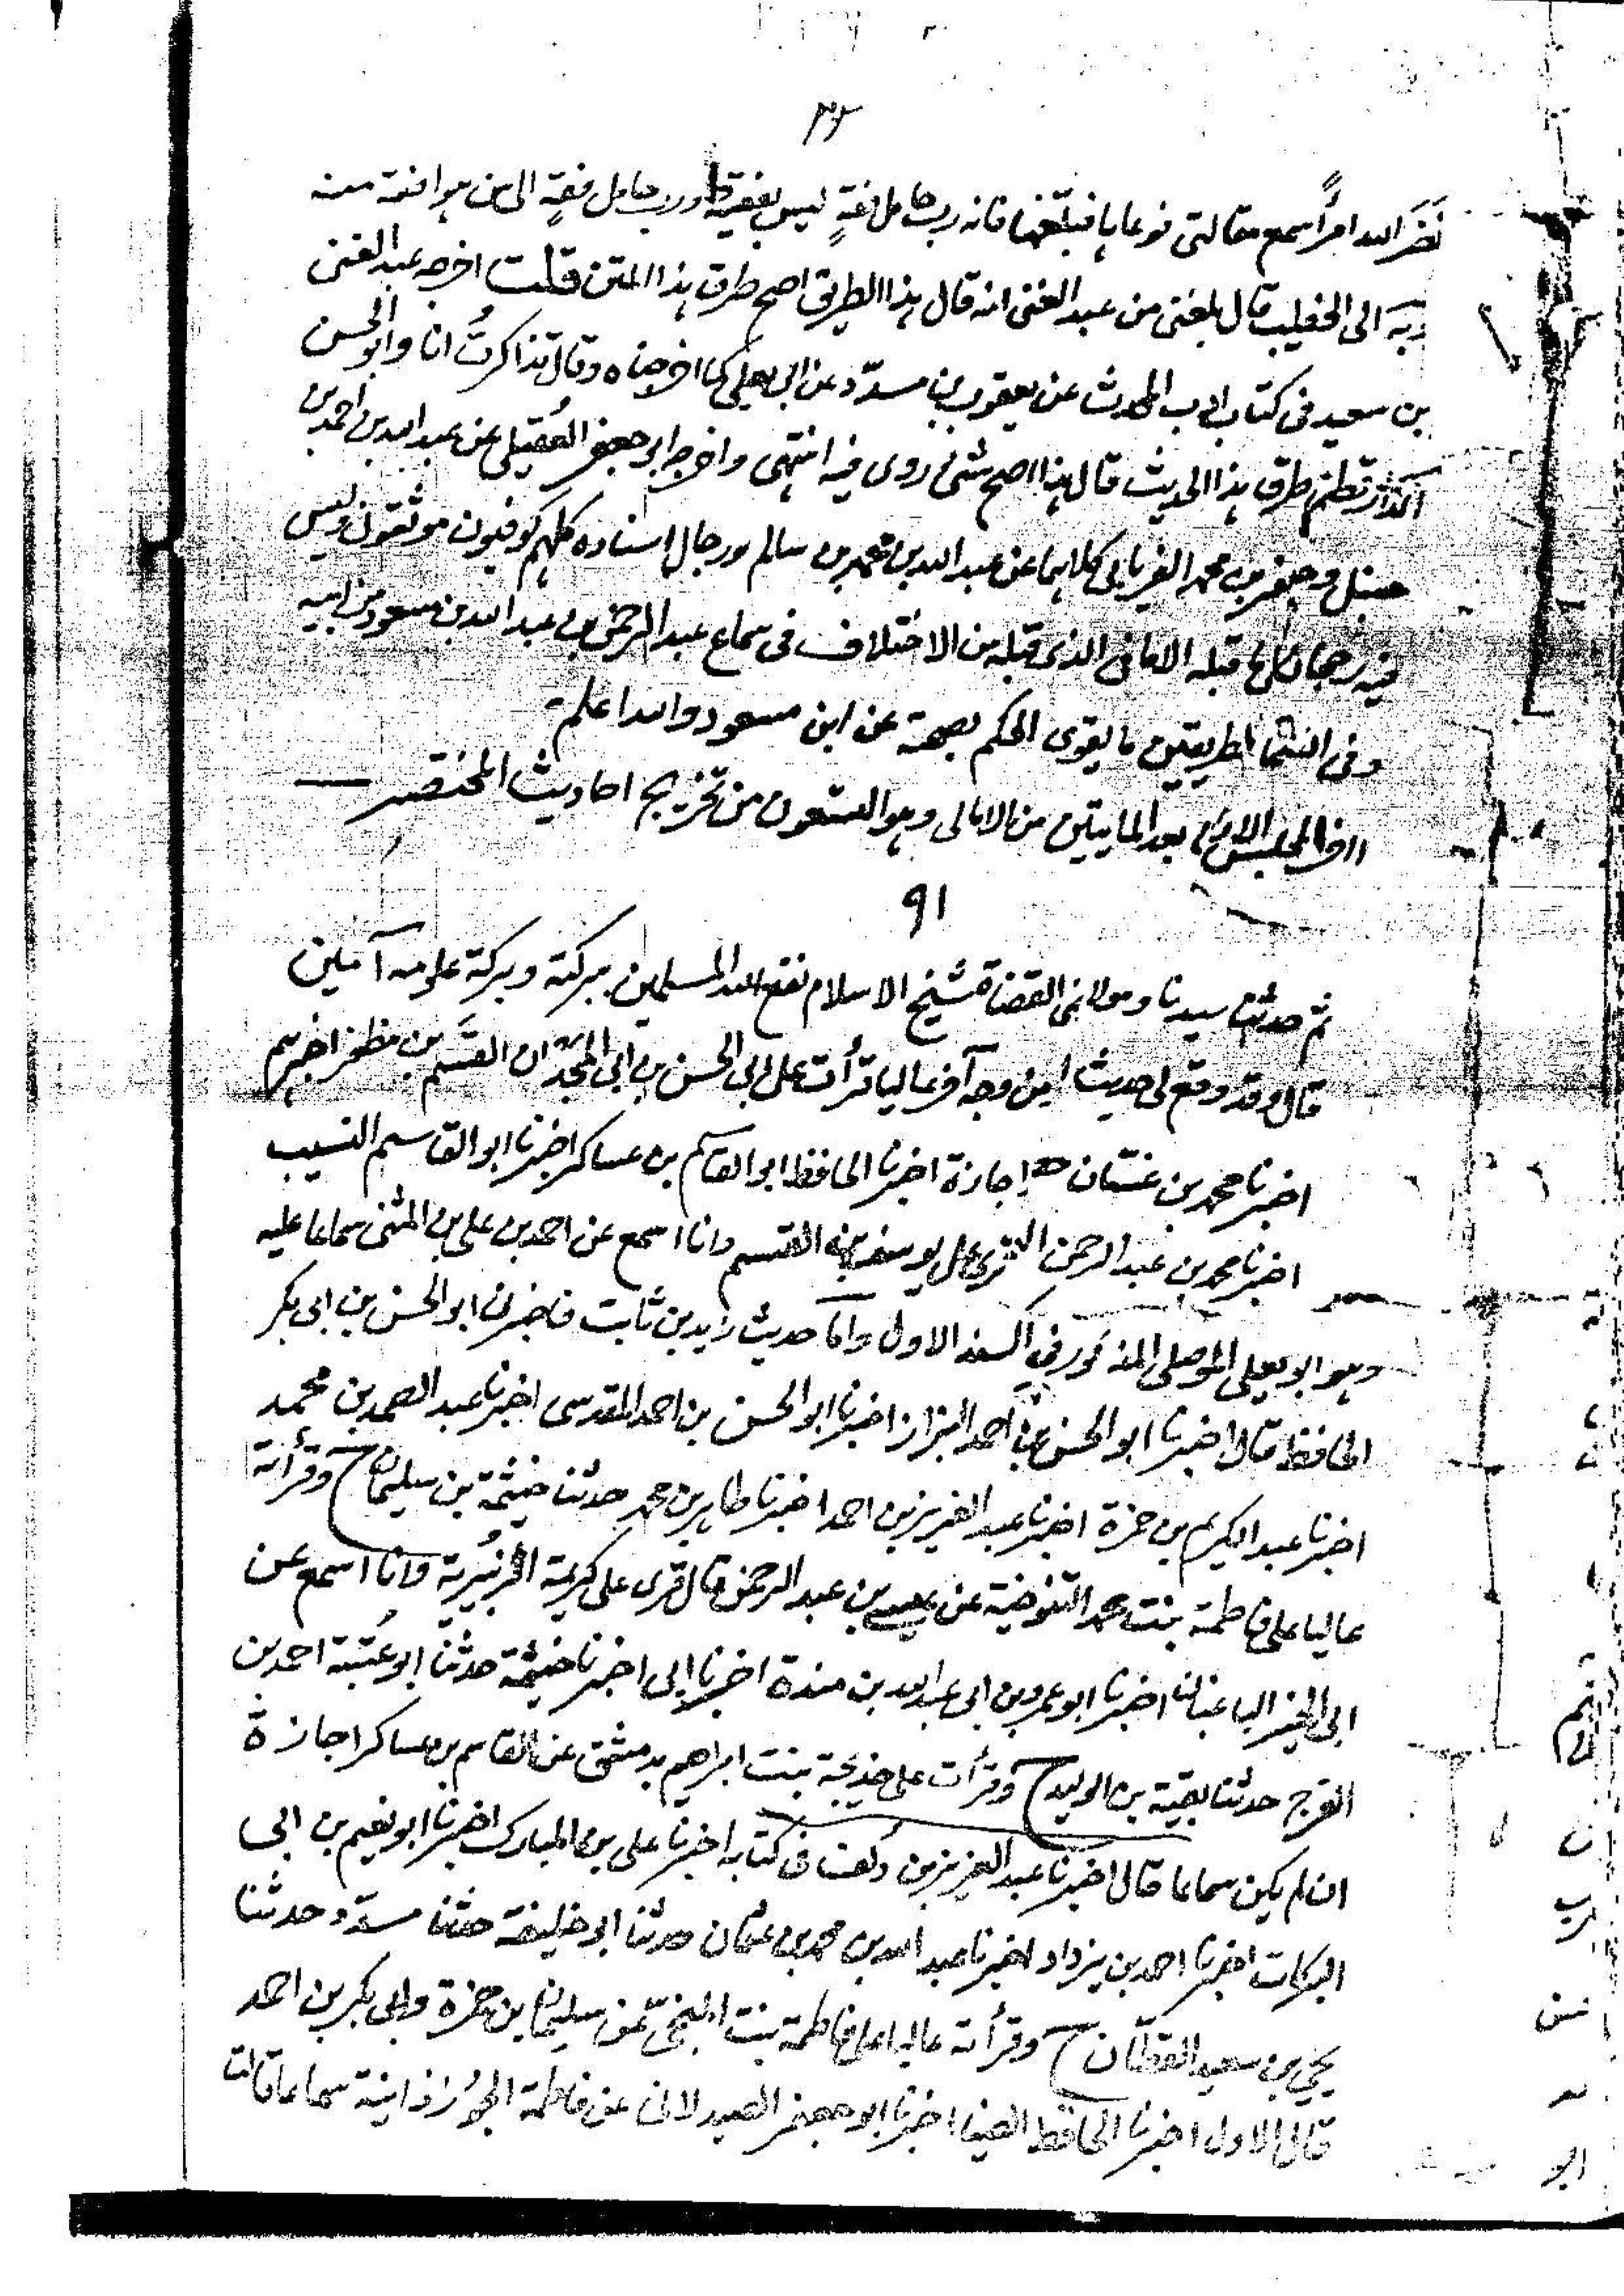 ۳۶
نَضَر الله امرأً سمع مقالتى فوعاها فبلّغها فانه رب حامل فقهٍ ليس بفقيه ورب حامل فقهٍ الى من هو افقه منه
وبه الى الخطيب قال بلغنى من عبد الغنى انه قال هذا الطريق اصح طرق هذا المتن قلت اخرجه عبد الغنى
بن سعيد فى كتاب ادب المحدث عن يعقوب بن مسدّد عن ابى يعلى كما اخرجناه وقال تذاكرتُ انا وابو الحسن
الدارقطنى طرق هذا الحديث قال هذا اصح شئ روى فيه انتهى واخرجه ابو جعفر العُقيلى عن عبد الله بن احمد بن
حنبل وجعفر بن محمد الفريابى كلاهما عن عبد الله بن محمد بن سالم ورجال اسناده كلهم كوفيون موثقون وليس
فيه قبله الا ما فى الذى قبله من الاختلاف فى سماع عبد الرحمن بن عبد الله بن مسعود من ابيه
وفى الطريقين ما يقوى الحكم بصحته عن ابن مسعود والله اعلم
اخر المجلس بعد المايتين من الامالى وهو التسعون من تخريج احاديث المختصر
۹۱
ثم حدثنا سيدنا ومولانا القضاة شيخ الاسلام نفع الله المسلمين ببركته وبركة علومه آمين
قال وقد وقع لى حديث من وجه آخر عاليا قرأت على ابى الحسن بن ابى المجد ان القسَم بن مظفر اخبرهم
اخبرنا محمد بن غسّان اجازة اخبرنا الحافظ ابو القاسم بن عساكر اخبرنا ابو القاسم النسيب
اخبرنا محمد بن عبد الرحمن قرئ على يوسف بن القسم وانا اسمع عن احمد بن على بن المثنى سماعا عليه
وهو ابو يعلى الموصلى المذكور فى السند الاول وامّا حديث زيد بن ثابت فاخبرنى ابو الحسن بن ابى بكر
الحافظ قال اخبرنا ابو الحسن بن احمد البزار اخبرنا ابو الحسن بن احمد المقدسى اخبرنا عبد الصمد بن محمد
اخبرنا عبد الكريم بن حمزة اخبرنا عبد العزيز بن احمد اخبرنا طاهر بن محمد حدثنا خيثمة بن سليمان ح وقرأته
عاليا على فاطمة بنت محمد التنوخية عن عيسى بن عبد الرحمن قال قرى على كريمة الزُبيرية وانا اسمع عن
ابى الخير الباغبان اخبرنا ابو عمرو بن ابى عبد الله بن مندة اخبرنا ابى اخبرنا خيثمة حدثنا ابو عُتبة احمد بن
الفرج حدثنا بقيّة بن الوليد ح وقرأت على خديجة بنت ابراهيم بدمشق عن القاسم بن عساكر اجازة
ان لم يكن سماعا قال اخبرنا عبد العزيز بن دُلف فى كتابه اخبرنا على بن المبارك اخبرنا ابو نعيم بن ابى
البركات اخبرنا احمد بن يزداد اخبرنا عبد الله بن محمد بن عثمان حدثنا ابو خليفة حدثنا مسدّد حدثنا
يحيى بن سعيد القطّان ح وقرأته عاليا على فاطمة بنت المنجّى عن سليمان بن حمزة وابى بكر بن احمد
قال الاول اخبرنا الحافظ الضياء اخبرنا ابو جعفر الصيدلانى عن فاطمة الجُوزذانية سماعا قالت